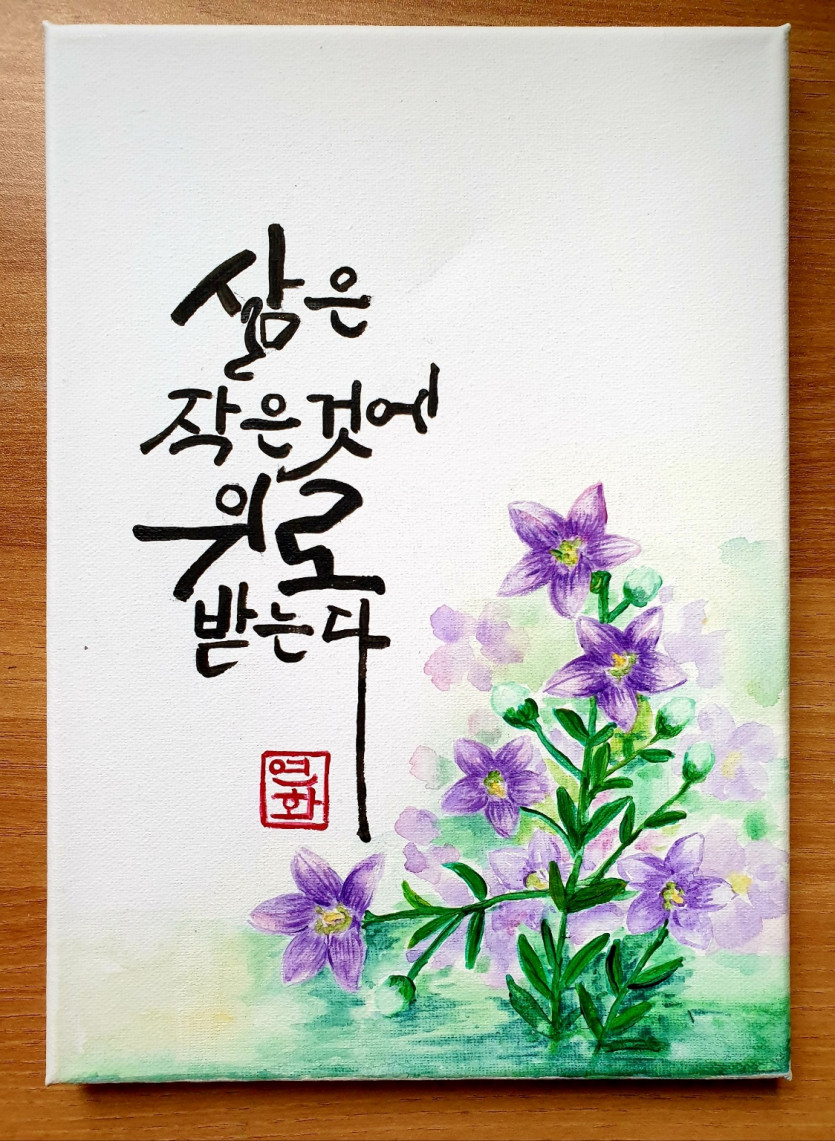 삶은
작은것에
위로
받는다
연화